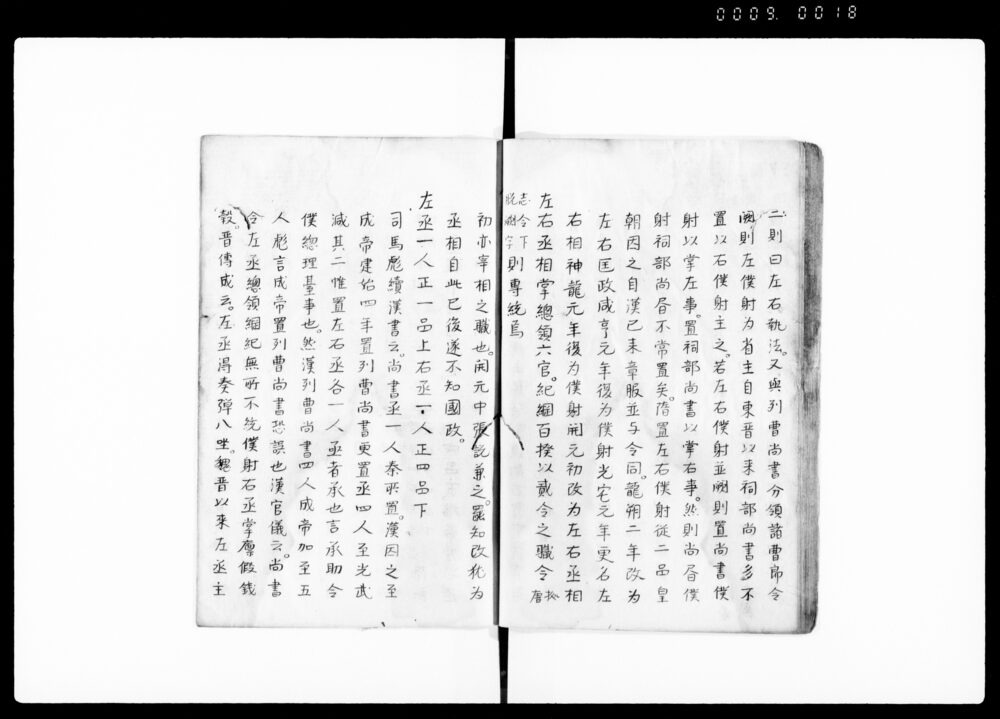 0009. 0018
二則曰左右執法。又與列曹尚書分領諸曹郎令
闕則左僕射为省主自東晋以来祠部尚書多不
置以右僕射主之。若左右僕射並闕則置尚書僕
射以掌左事。置祠部尚書以掌右事。然則尚書僕
射祠部尚書不常置矣。隋置左右僕射從二品皇
朝因之自漢已来章服並与令同。龍朔二年改为
左右匡政咸亨元年復为僕射光宅元年更名左
右相神龍元年復为僕射開元初改为左右丞相
左右丞相掌總領六官。紀綱百揆以貳令之職令 按唐
志令下脱闕字則專統焉
初亦宰相之職也。開元中張說兼之。罷知政犹为
丞相自此已後遂不知國政。
左丞一人正一品上右丞一人正四品下
司馬彪續漢書云。尚書丞一人秦所置。漢因之至
成帝建始四年置列曹尚書更置丞四人至光武
減其二惟置左右丞各一人丞者承也言承助令
僕總理臺事也。然漢列曹尚書四人成帝加至五
人彪言成帝置列曹尚書恐誤也漢官儀云。尚書
令左丞總領綱紀無所不統僕射右丞掌廩假錢
穀。晋傅咸云。左丞得奏彈八坐。魏晋以來左丞主